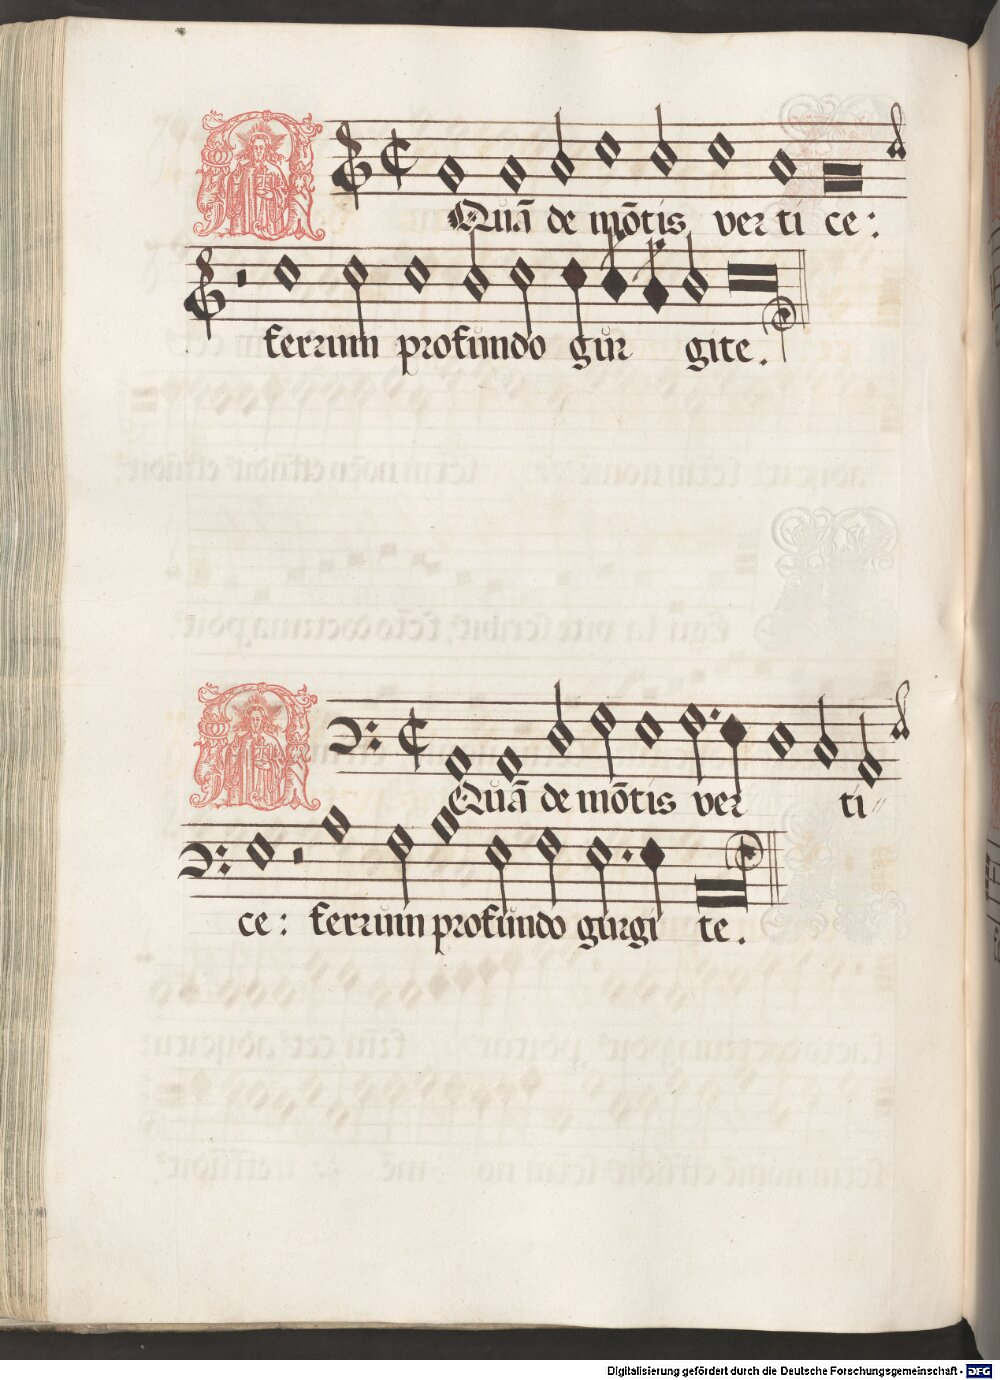 Quā de mōtis ver ti ce:
ferrum profundo gur gite.
Quā de mōtis ver ti
ce: ferrum profundo gurgi te.
Digitalisierung gefördert durch die Deutsche Forschungsgemeinschaft - DFG